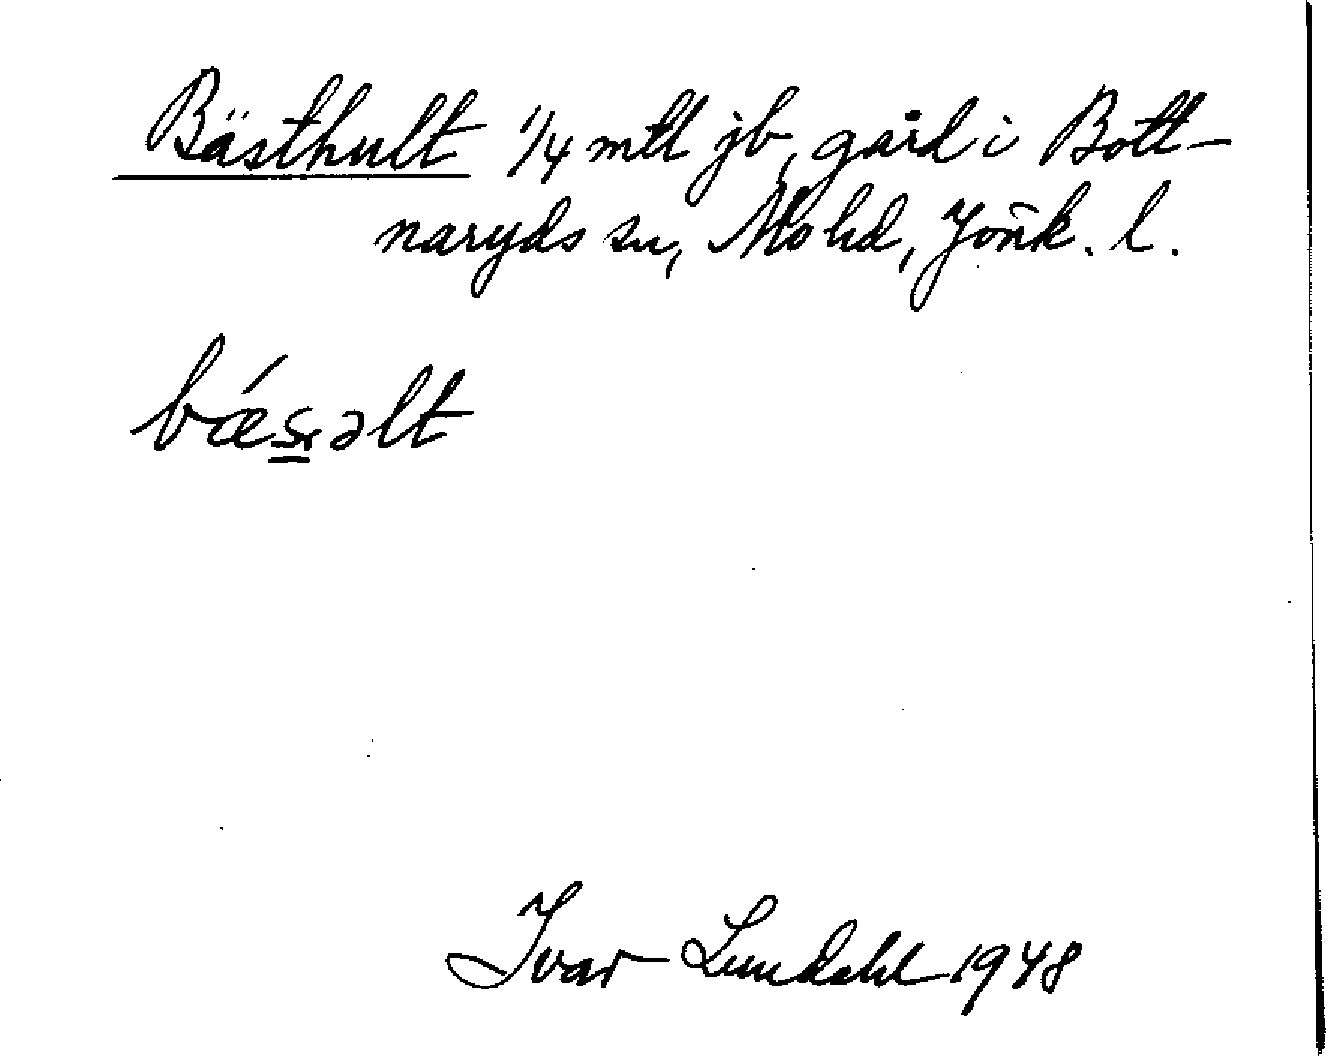 Bästhult 1/4 mtl jb, gård i Bott-
naryds sn, Mo hd, Jönk. l.
bǽs̳əlt
Ivar Lundahl 1948